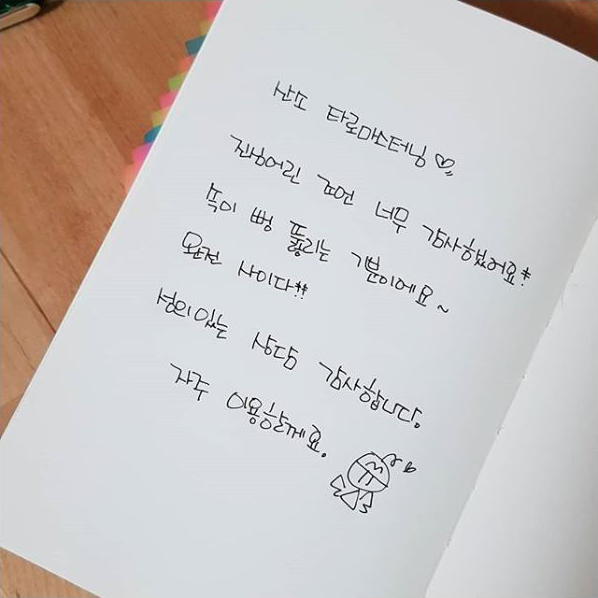 산소 타로마스터님♡
진심어린 조언 너무 감사했어요!!
속이 뻥 뚫리는 기분이에요~
완전 사이다!!
성의있는 상담 감사합니다.
자주 이용할께요.